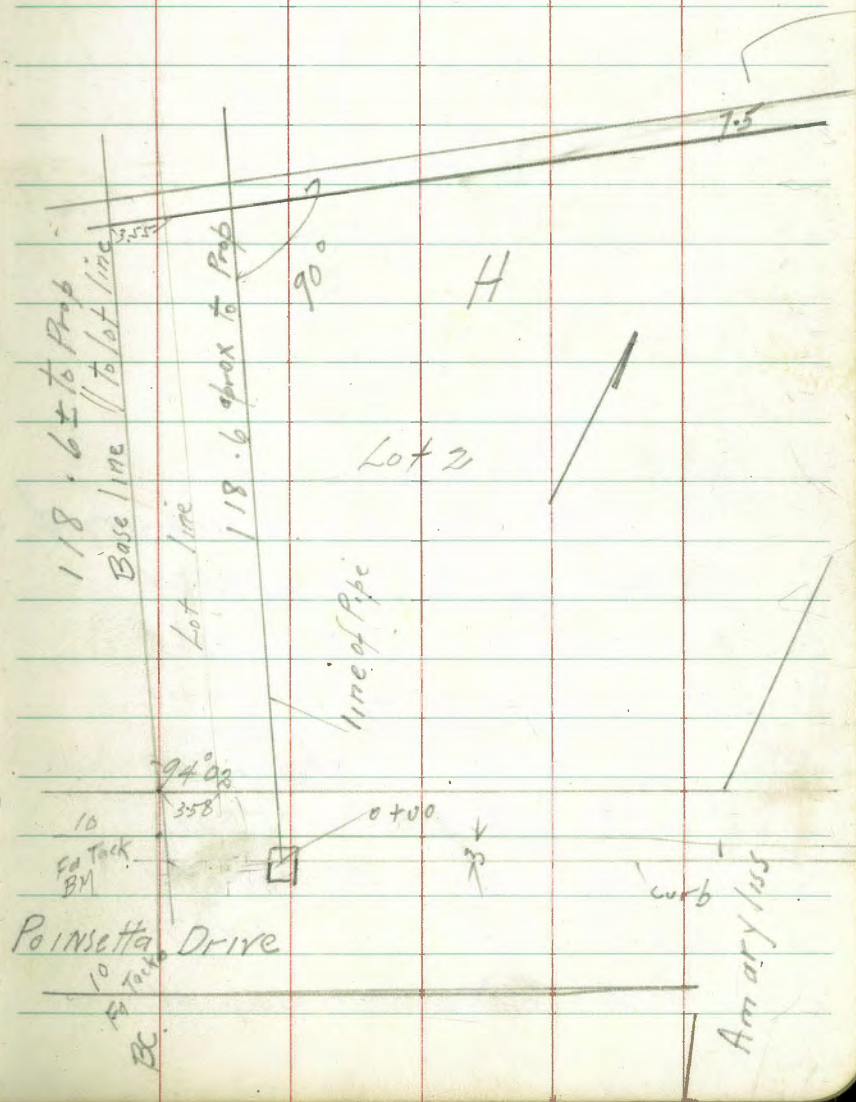 7.5
3.55
118.6± to Prop
Base line // to lot line
Lot line
118.6 aprox to Prop
90°
H
Lot 2
line of Pipe
94°02
3.58
0+00
10
Fd Tack
BM
3
curb
Poinsetta Drive
10
Fd Tack
BC.
Amaryliss